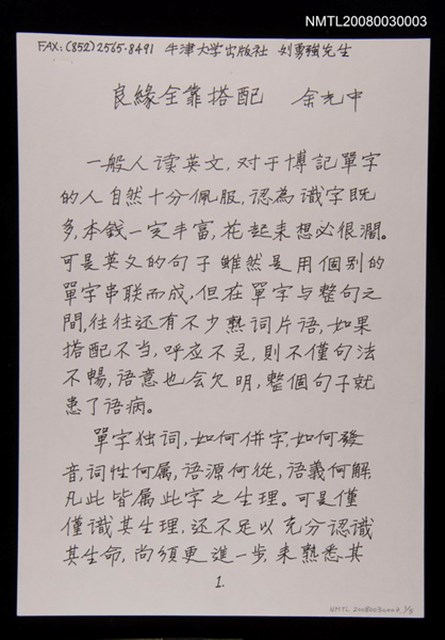 NMTL20080030003
FAX:(852)2565-8491 牛津大学出版社 刘勇強先生
良緣全靠搭配 余光中
一般人读英文,对于博記單字
的人自然十分佩服,認為識字既
多,本钱一定丰富,花起来想必很濶。
可是英文的句子雖然是用個别的
單字串联而成,但在單字与整句之
間,往往还有不少熟词片语,如果
搭配不当,呼应不灵,則不僅句法
不暢,语意也会欠明,整個句子就
患了语病。
單字独词,如何併字,如何發
音,词性何属,语源何從,语義何解,
凡此皆属此字之生理。可是僅
僅識其生理,还不足以充分認識
其生命,尚須更進一步,来熟悉其
1.
NMTL20080030003_1/5